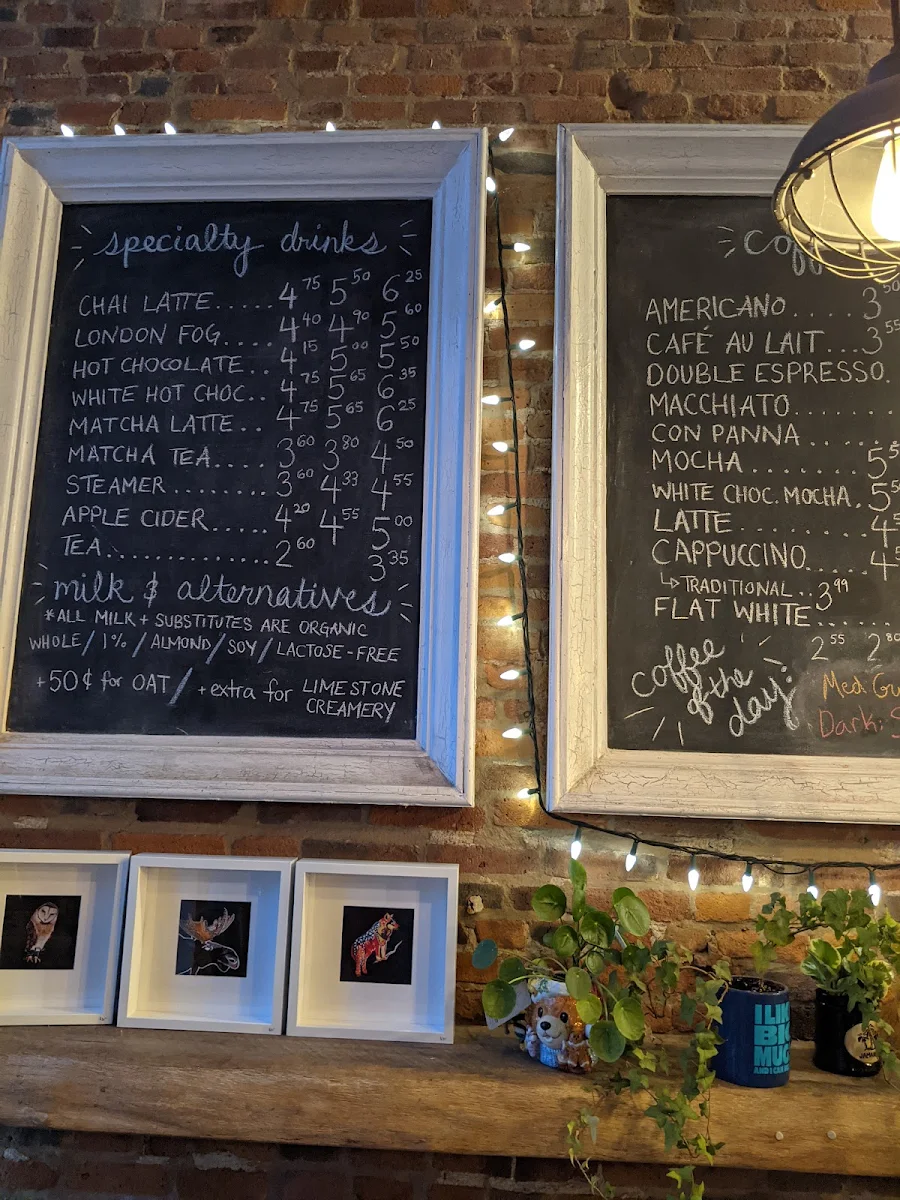 specialty drinks
CHAI LATTE..... 4.75 5.50 6.25
LONDON FOG.... 4.40 4.90 5.60
HOT CHOCOLATE.. 4.15 5.00 5.50
WHITE HOT CHOC.. 4.75 5.65 6.35
MATCHA LATTE... 4.75 5.65 6.25
MATCHA TEA.... 3.60 3.80 4.50
STEAMER........ 3.60 4.33 4.55
APPLE CIDER...... 4.20 4.55 5.00
TEA.............. 2.60 3.35
milk & alternatives
*ALL MILK + SUBSTITUTES ARE ORGANIC
WHOLE / 1% / ALMOND / SOY / LACTOSE-FREE
+50¢ for OAT / +extra for LIMESTONE
CREAMERY
AMERICANO..... 3
CAFÉ AU LAIT...3.55
DOUBLE ESPRESSO.
MACCHIATO.......
CON PANNA......
MOCHA........ 5
WHITE CHOC. MOCHA. 5
LATTE.......... 4
CAPPUCCINO..... 4
↳ TRADITIONAL.. 3.99
FLAT WHITE......
coffee
of the
day:
2.55 2.80
Med:
Dark:
I LIKE
BIG
MUGS
AND I CAN